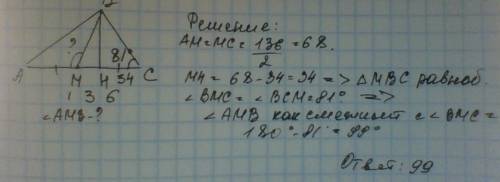 Решение:
AM=MC= 136/2 =68.
MH= 68-34=34 => △MBC равноб.
∠BMC= ∠BCM=81° =>
∠AMB как смежный с ∠BMC=
180°-81°=99°
Ответ: 99
B
? 81°
A M H 34 C
1 3 6
∠AMB-?